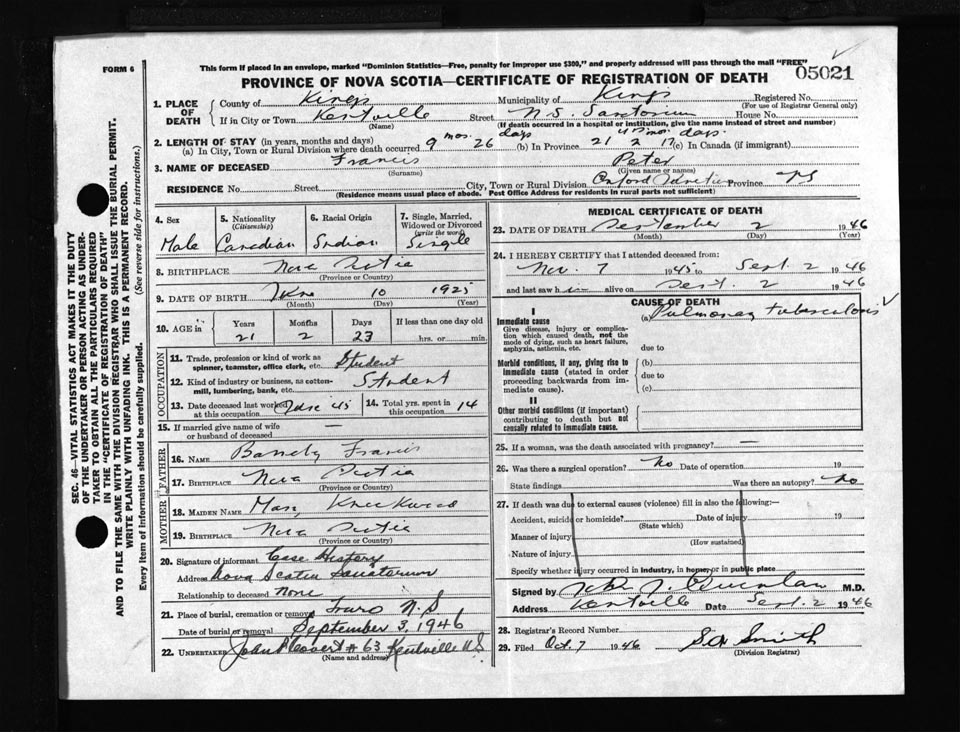 FORM 6
This form if placed in an envelope, marked "Dominion Statistics—Free, penalty for improper use $300," and properly addressed will pass through the mail "FREE"
PROVINCE OF NOVA SCOTIA—CERTIFICATE OF REGISTRATION OF DEATH
05021
1. PLACE OF DEATH
County of Kings Municipality of Kings Registered No.
(For use of Registrar General only)
If in City or Town Kentville Street N.S. House No.
(Name) (If death occurred in a hospital or institution, give the name instead of street and number)
2. LENGTH OF STAY (in years, months and days)
(a) In City, Town or Rural Division where death occurred 9 mos. 26 days (b) In Province 21 2 17 (c) In Canada (if immigrant)
3. NAME OF DECEASED Francis Peter
(Surname) (Given name or names)
RESIDENCE No. Street City, Town or Rural Division Oxford Province NS
(Residence means usual place of abode. Post Office Address for residents in rural parts not sufficient)
4. Sex Male
5. Nationality (Citizenship) Canadian
6. Racial Origin Indian
7. Single, Married, Widowed or Divorced (write the word) Single
8. BIRTHPLACE Nova Scotia
(Province or Country)
9. DATE OF BIRTH 10 1925
(Month) (Day) (Year)
10. AGE in Years Months Days If less than one day old
21 2 23 hrs. or min.
OCCUPATION
11. Trade, profession or kind of work as spinner, teamster, office clerk, etc. Student
12. Kind of industry or business, as cotton-mill, lumbering, bank, etc. Student
13. Date deceased last worked at this occupation 45
14. Total yrs. spent in this occupation 14
15. If married give name of wife or husband of deceased —
FATHER
16. NAME Francis
17. BIRTHPLACE Nova Scotia
(Province or Country)
MOTHER
18. MAIDEN NAME
19. BIRTHPLACE Nova Scotia
(Province or Country)
20. Signature of informant Case History
Address Nova Scotia Sanatorium
Relationship to deceased None
21. Place of burial, cremation or removal Truro N.S
Date of burial or removal September 3, 1946
22. UNDERTAKER # 63 Kentville N.S
(Name and address)
MEDICAL CERTIFICATE OF DEATH
23. DATE OF DEATH September 2 1946
(Month) (Day) (Year)
24. I HEREBY CERTIFY that I attended deceased from:
Nov. 7 1945 to Sept. 2 1946
and last saw h alive on Sept. 2 1946
CAUSE OF DEATH
I
Immediate cause (a) Pulmonary tuberculosis
Give disease, injury or complication which caused death, not the mode of dying, such as heart failure, asphyxia, asthenia, etc.
due to
Morbid conditions, if any, giving rise to immediate cause (stated in order proceeding backwards from immediate cause).
(b)
due to
(c)
II
Other morbid conditions (if important) contributing to death but not causally related to immediate cause.
25. If a woman, was the death associated with pregnancy? —
26. Was there a surgical operation? No Date of operation 19
State findings Was there an autopsy? No
27. If death was due to external causes (violence) fill in also the following:—
Accident, suicide or homicide? Date of injury 19
(State which)
Manner of injury
(How sustained)
Nature of injury
Specify whether injury occurred in industry, in home, or in public place
Signed by J. Quinlan M.D.
Address Kentville Date Sept. 2 1946
28. Registrar's Record Number
29. Filed Oct. 7 1946 Smith
(Division Registrar)
SEC. 46—VITAL STATISTICS ACT MAKES IT THE DUTY
OF THE UNDERTAKER OR PERSON ACTING AS UNDER-
TAKER TO OBTAIN ALL THE PARTICULARS REQUIRED
IN THE "CERTIFICATE OF REGISTRATION OF DEATH"
AND TO FILE THE SAME WITH THE DIVISION REGISTRAR WHO SHALL ISSUE THE BURIAL PERMIT.
WRITE PLAINLY WITH UNFADING INK. THIS IS A PERMANENT RECORD.
Every item of information should be carefully supplied. (See reverse side for instructions.)